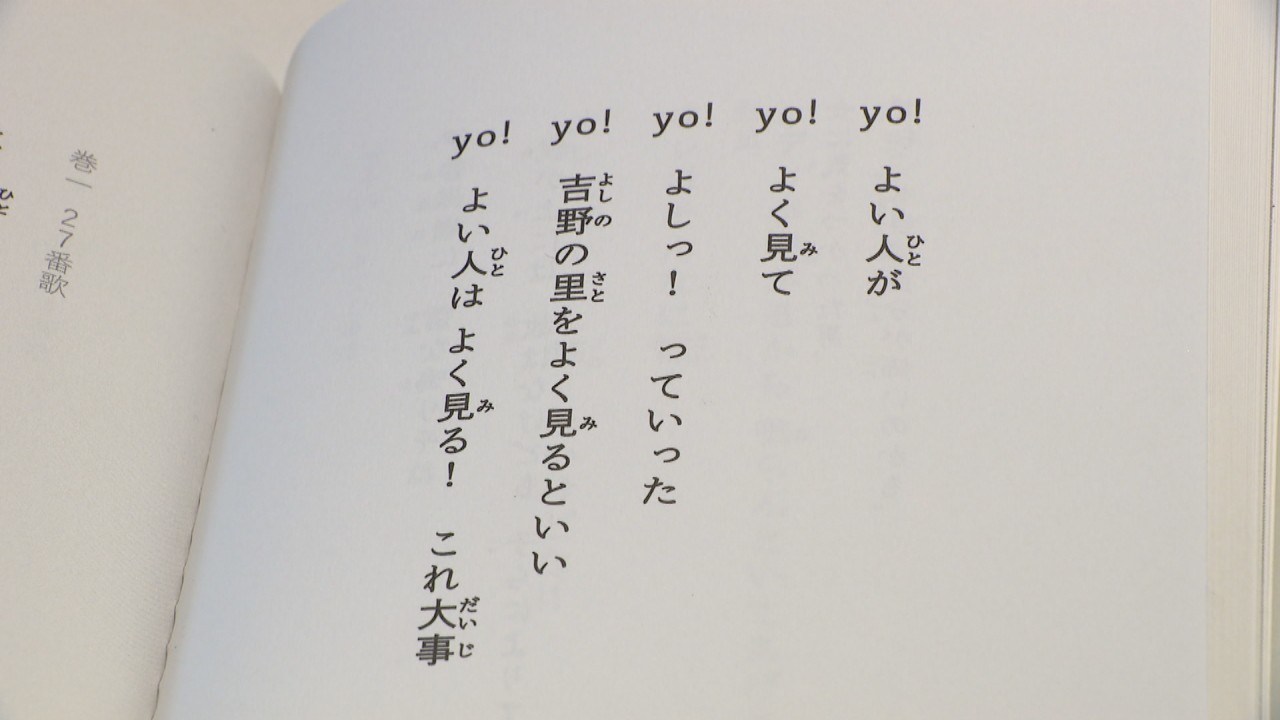 yo! よい人が
yo! よく見て
yo! よしっ! っていった
yo! 吉野の里をよく見るといい
yo! よい人は よく見る! これ大事
巻一 27番歌